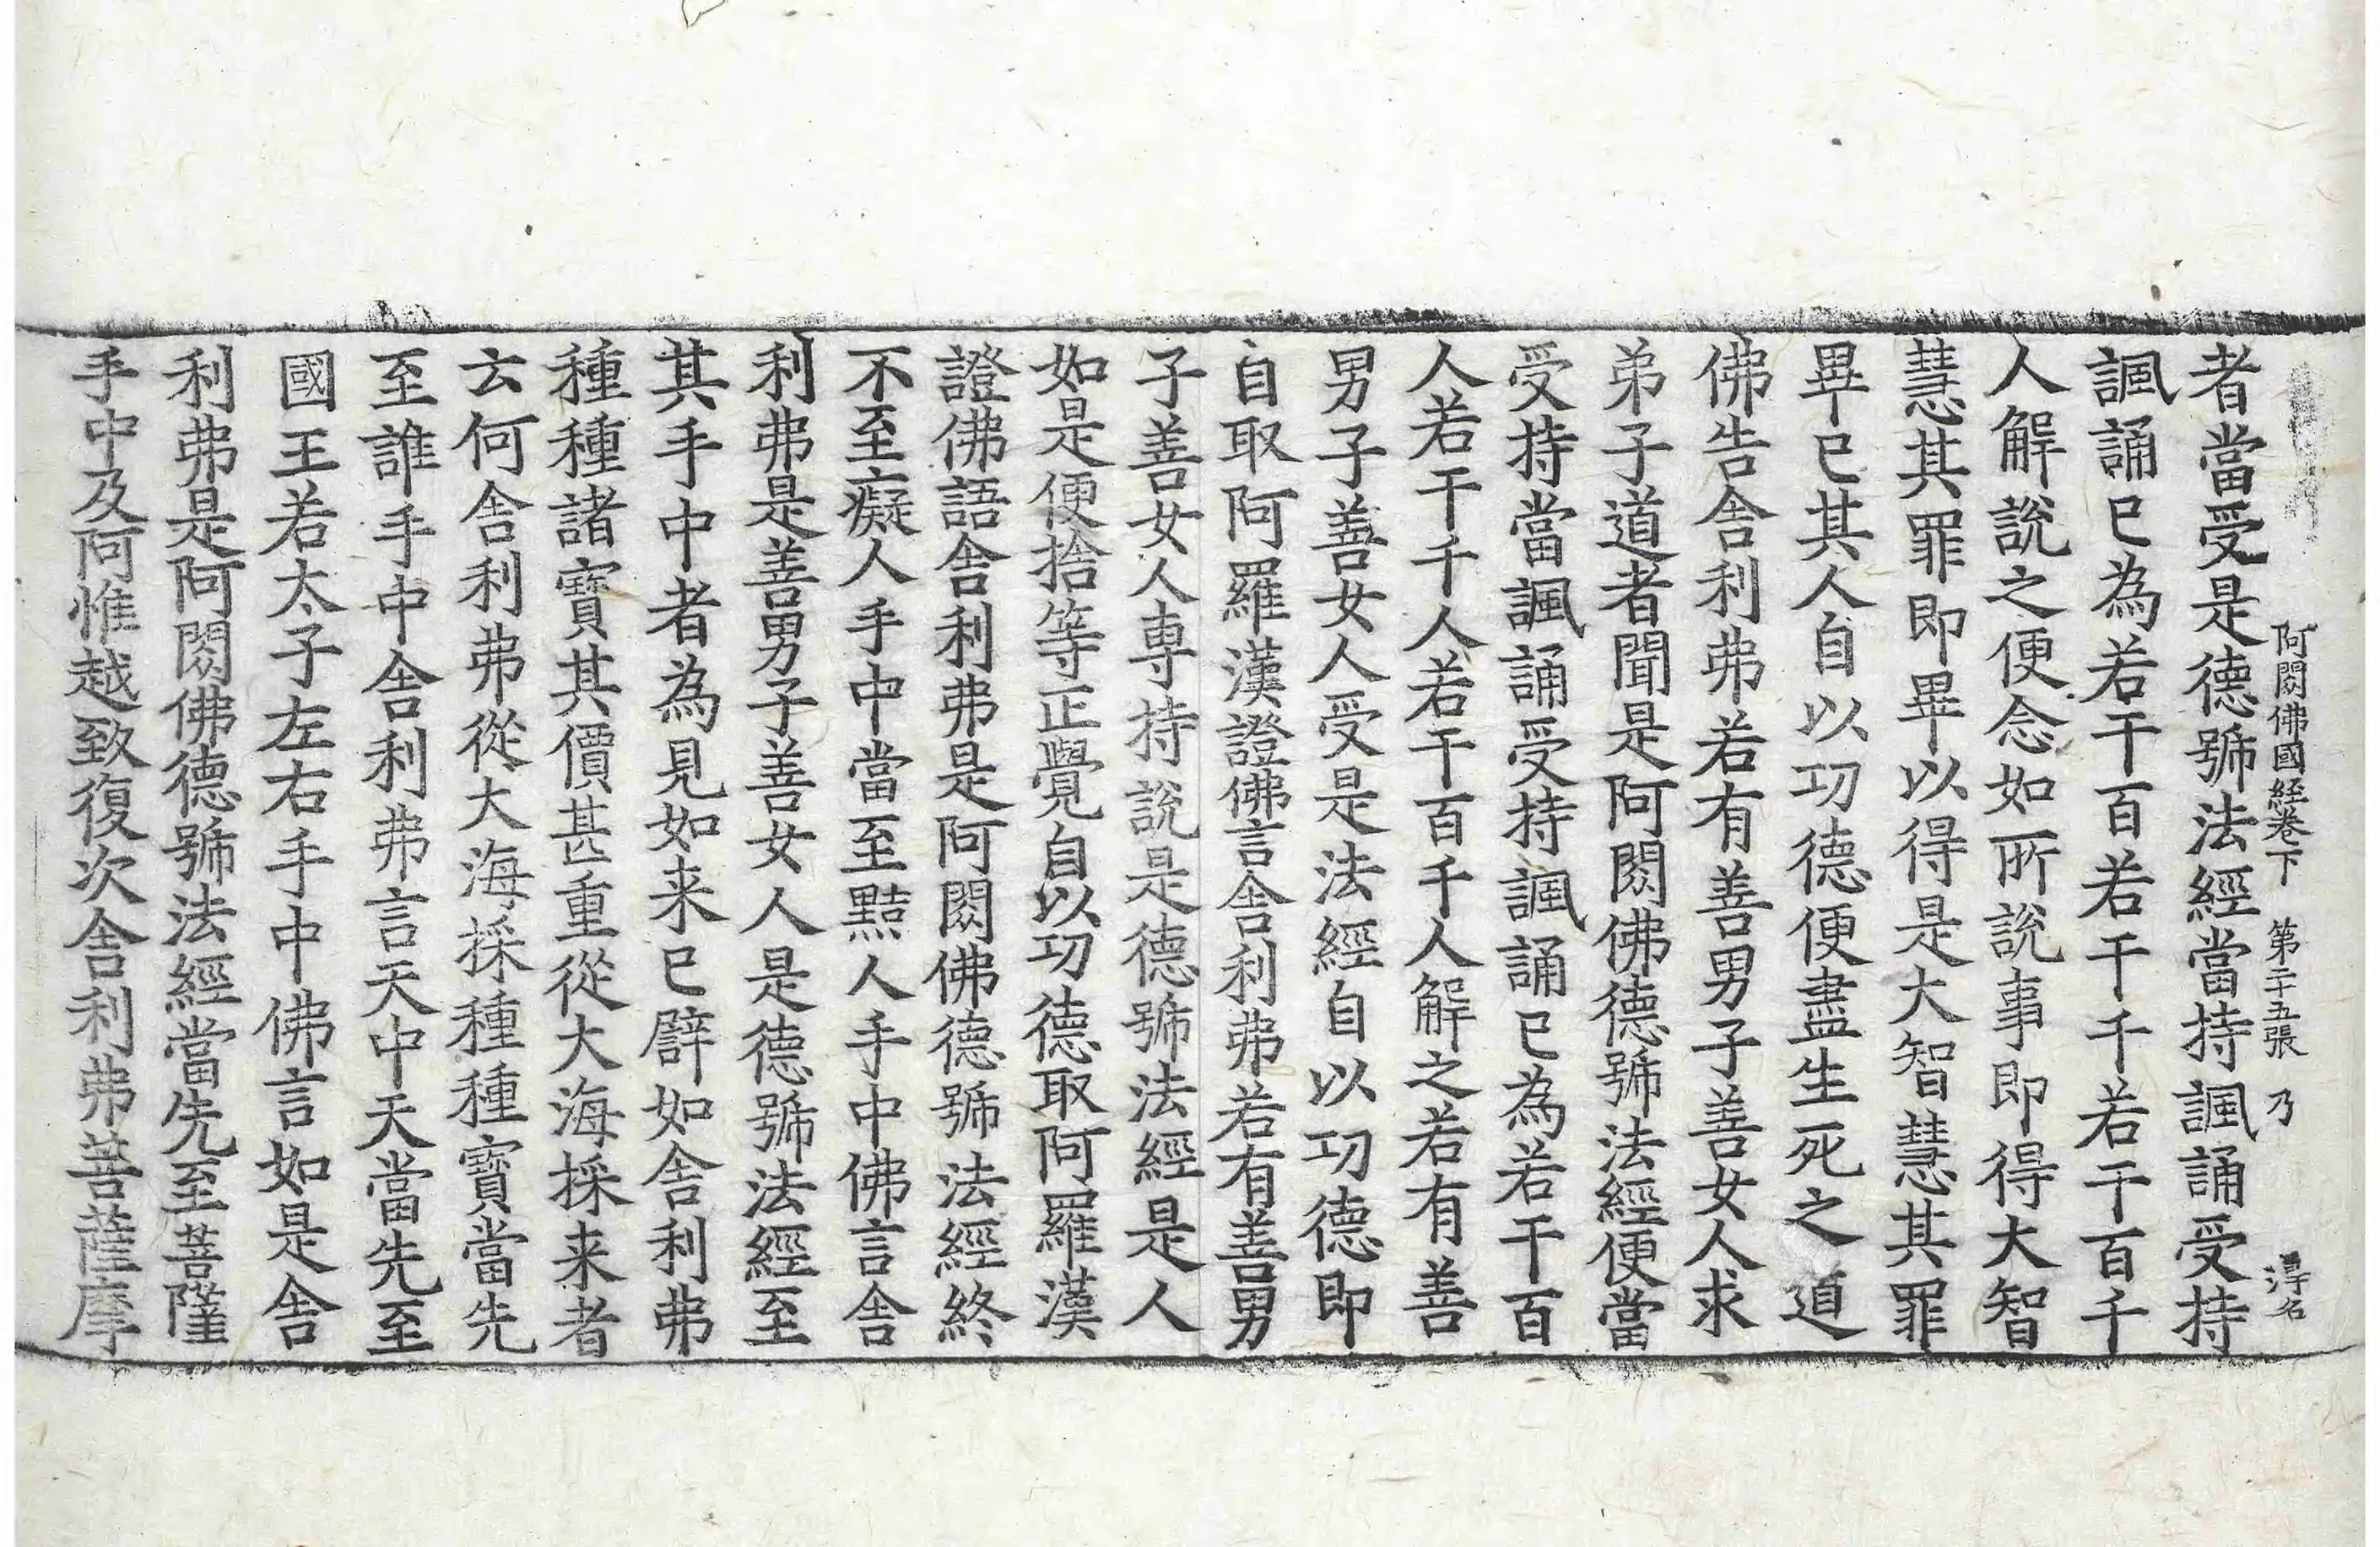 阿閦佛國経卷下 第二十五張 乃 淳名
者當受是德號法經當持諷誦受持
諷誦已為若干百若干千若干百千
人解說之便念如所說事即得大智
慧其罪即畢以得是大智慧其罪
畢已其人自以功德便盡生死之道
佛告舍利弗若有善男子善女人求
弟子道者聞是阿閦佛德號法經便當
受持當諷誦受持諷誦已為若干百
人若干千人若干百千人解之若有善
男子善女人受是法經自以功德即
自取阿羅漢證佛言舍利弗若有善男
子善女人專持說是德號法經是人
如是便捨等正覺自以功德取阿羅漢
證佛語舍利弗是阿閦佛德號法經終
不至癡人手中當至黠人手中佛言舍
利弗是善男子善女人是德號法經至
其手中者為見如来已辟如舍利弗
種種諸寶其價甚重從大海採来者
云何舍利弗從大海採種種寶當先
至誰手中舍利弗言天中天當先至
國王若太子左右手中佛言如是舍
利弗是阿閦佛德號法經當先至菩薩
手中及阿惟越致復次舍利弗菩薩摩